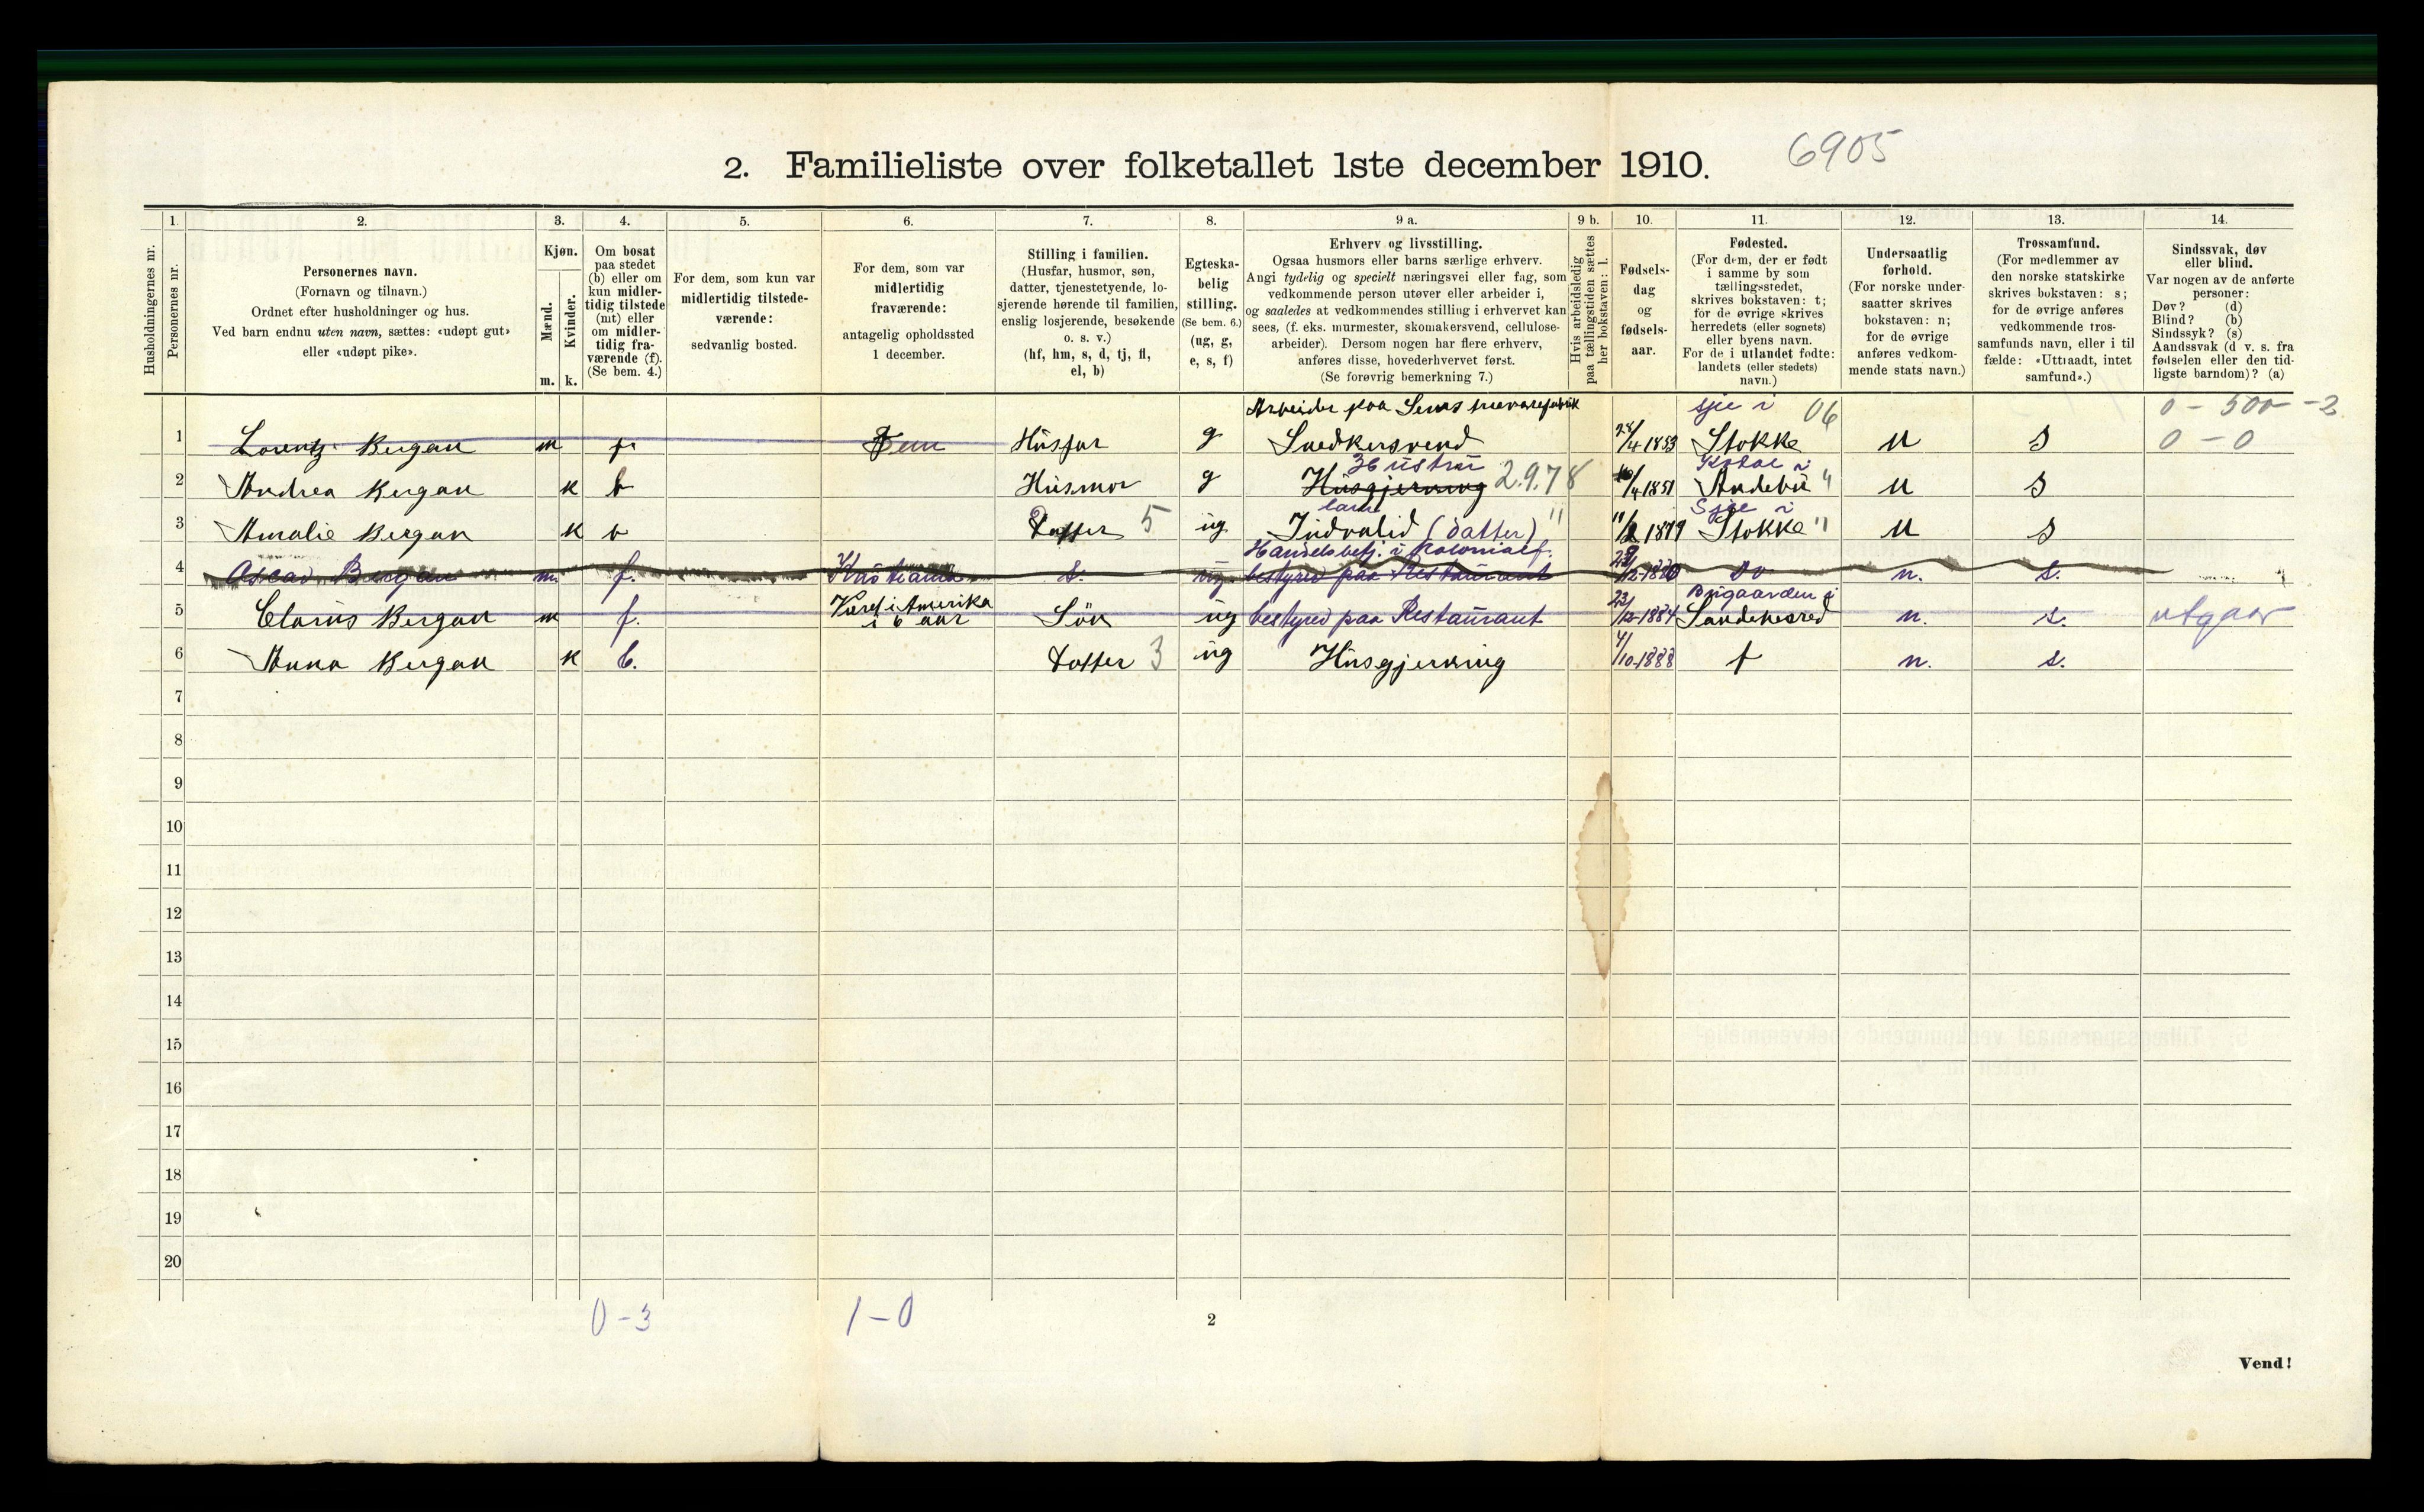 2. Familieliste over folketallet 1ste december 1910. 6905
1. 2. 3. 4. 5. 6. 7. 8. 9 a. 9 b. 10. 11. 12. 13. 14.
Husholdningernes nr.
Personernes nr.
Personernes navn.
(Fornavn og tilnavn.)
Ordnet efter husholdninger og hus.
Ved barn endnu uten navn, sættes: «udøpt gut»
eller «udøpt pike».
Kjøn.
Mænd.
Kvinder.
m. k.
Om bosat
paa stedet
(b) eller om
kun midler-
tidig tilstede
(mt) eller
om midler-
tidig fra-
værende (f).
(Se bem. 4.)
For dem, som kun var
midlertidig tilstede-
værende:
sedvanlig bosted.
For dem, som var
midlertidig
fraværende:
antagelig opholdssted
1 december.
Stilling i familien.
(Husfar, husmor, søn,
datter, tjenestetyende, lo-
sjerende hørende til familien,
enslig losjerende, besøkende
o. s. v.)
(hf, hm, s, d, tj, fl,
el, b)
Egteska-
belig
stilling.
(Se bem. 6.)
(ug, g,
e, s, f)
Erhverv og livsstilling.
Ogsaa husmors eller barns særlige erhverv.
Angi tydelig og specielt næringsvei eller fag, som
vedkommende person utøver eller arbeider i,
og saaledes at vedkommendes stilling i erhvervet kan
sees, (f. eks. murmester, skomakersvend, cellulose-
arbeider). Dersom nogen har flere erhverv,
anføres disse, hovederhvervet først.
(Se forøvrig bemerkning 7.)
Hvis arbeidsledig
paa tællingstiden sættes
her bokstaven: l.
Fødsels-
dag
og
fødsels-
aar.
Fødested.
(For dem, der er født
i samme by som
tællingsstedet,
skrives bokstaven: t;
for de øvrige skrives
herredets (eller sognets)
eller byens navn.
For de i utlandet fødte:
landets (eller stedets)
navn.)
Undersaatlig
forhold.
(For norske under-
saatter skrives
bokstaven: n;
for de øvrige
anføres vedkom-
mende stats navn.)
Trossamfund.
(For medlemmer av
den norske statskirke
skrives bokstaven: s;
for de øvrige anføres
vedkommende tros-
samfunds navn, eller i til
fælde: «Uttraadt, intet
samfund».)
Sindssvak, døv
eller blind.
Var nogen av de anførte
personer:
Døv? (d)
Blind? (b)
Sindssyk? (s)
Aandssvak (d v. s. fra
fødselen eller den tid-
ligste barndom)? (a)
Arbeider paa Sems trevarefabrik sje i 06 0 - 500 - 2
1 Lorentz Bergan m f Sem Husfar g Snedkersvend 28/4 1853 Stokke n s 0 - 0
Hustru Kodal i
2 Andrea Bergan k b Husmor g Husgjerning 2.9.78 /4 1851 Andebu " n s
Sje i
3 Amalie Bergan k b Datter 5 ug Indvalid (datter) " 11/ 1879 Stokke " n s
Handelsbetj. i Kolonialf.
4 Bergan m. f. Kristiania s. ug bestyrer paa Restaurant /12-1880 Do n. s.
Været i Amerika Bugaarden i
i 6 aar
5 Clarius Bergan m f. Sön ug bestyrer paa Restaurant 23/12-1884 Sandehered n. s. utgaar
6 Anna Bergan k b. Datter 3 ug Husgjerning 4/10-1888 t n. s.
7
8
9
10
11
12
13
14
15
16
17
18
19
20
0 - 3 1 - 0 2
Vend!